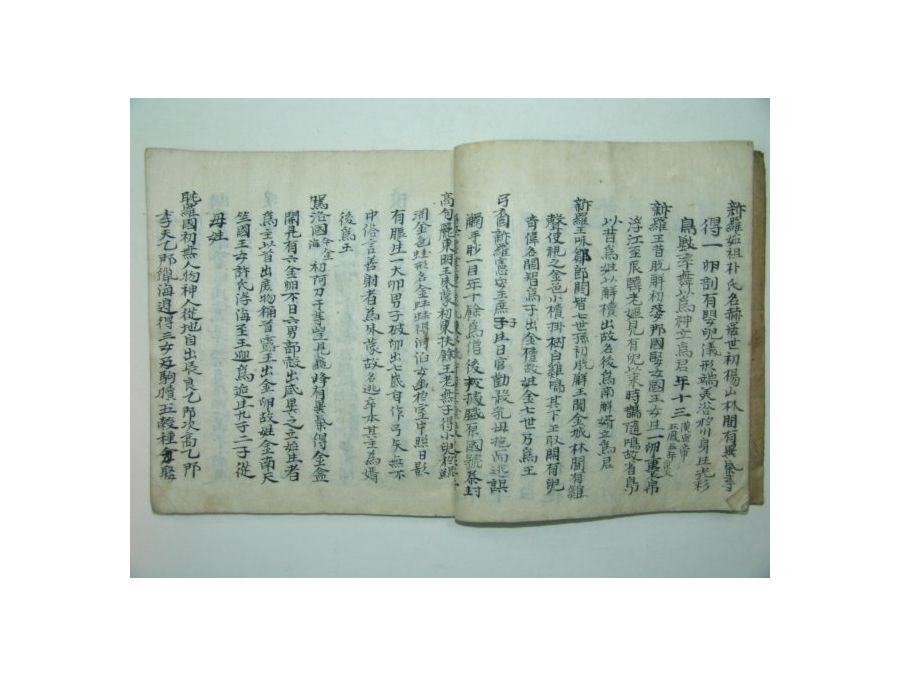 新羅始祖朴氏名赫居世初楊山林間有異氣
得一卵剖有嬰兒儀形端美浴於川身生光彩
鳥獸率舞以爲神立爲君年十三
新羅王昔脫解初 國 女國王女生一卵裹帛
浮江至辰韓老嫗見有兒以來時鵲隨鳴故省鳥
以昔爲姓以解櫝出故名後爲南解婿立爲君
新羅王味鄒郎閼智七世孫初脫解王聞金城林間有雞
聲使視之金色小櫝掛樹白雞鳴其下王取開有兒
奇偉名閼智爲子出金櫝故姓金七世乃爲王
弓裔新羅憲安王庶子生日官勸殺乳母抱而逃誤
觸手眇一目年十餘爲僧後 國號泰封
高句麗東明王朱蒙初東扶餘王老無子得小兒
淵金色蛙形名金蛙得河伯女幽於室中照日影
有脤生一大卵男子破卵出七歲自作弓矢無不
中俗言善射者爲朱蒙故名逃卒本其主爲婿
後爲王
駕洛國 初阿刀干等望見龜峰有異氣得金盒
開見有六金卵不日六男部殼出咸異之立姓生者
爲主以首出庶物稱首露王出金卵故姓金南天
竺國王女許氏浮海至王迎爲 生九子二子從
母姓
耽羅國初無人物神人從地自出長良乙那次高乙那
季夫乙那 海 得三女五駒犢五穀種分